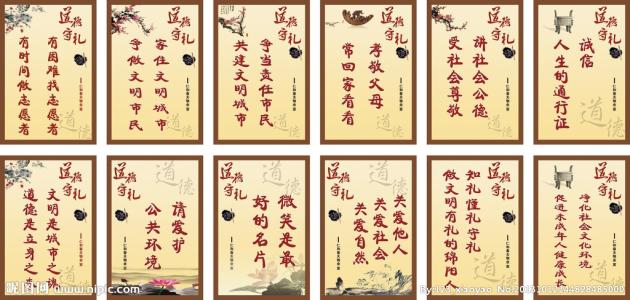 道德
守礼
有困难找志愿者
有时间做志愿者
道德
道德
守礼
家住文明城市
争做文明市民
道德
守礼
争当责任市民
共建文明城市
孝敬父母
常回家看看
道德
守礼
讲社会公德
受社会尊敬
诚信
人生的通行证
道德
道德
守礼
文明是城市之
道德是立身之
道德
守礼
道德
请爱护
公共环境
道德
守礼
道德
微笑是最
好的名片
道德
守礼
关爱他人
关爱社会
关爱自然
道德
守礼
知礼懂礼守礼
做文明有礼的绵阳
道德
守礼
净化社会文化环境
促进未成年人健康成长
昵图网 www.nipic.com